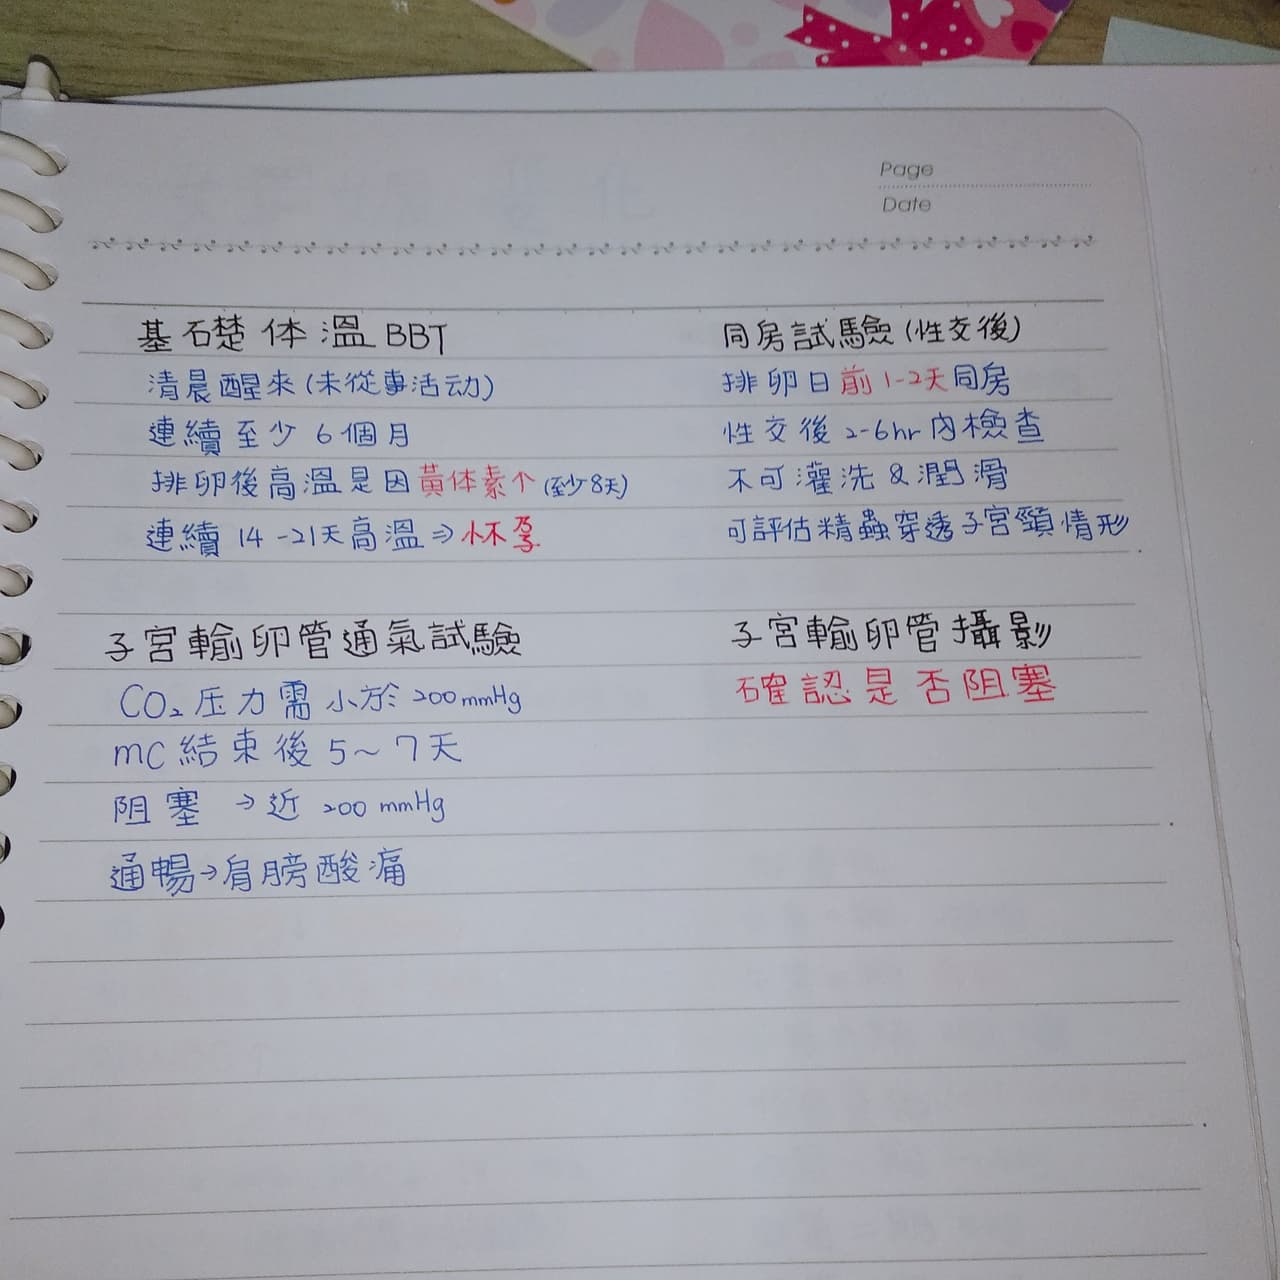 Page
Date
基礎体溫BBT
清晨醒來(未從事活动)
連續至少6個月
排卵後高溫是因黃体素↑(至少8天)
連續14-21天高溫⇒怀孕
同房試驗(性交後)
排卵日前1-2天同房
性交後2-6hr內檢查
不可灌洗&潤滑
可評估精蟲穿透子宮頸情形
子宮輸卵管通氣試驗
CO₂压力需小於200mmHg
mc結束後5~7天
阻塞→近200mmHg
通暢→肩膀酸痛
子宮輸卵管攝影
確認是否阻塞